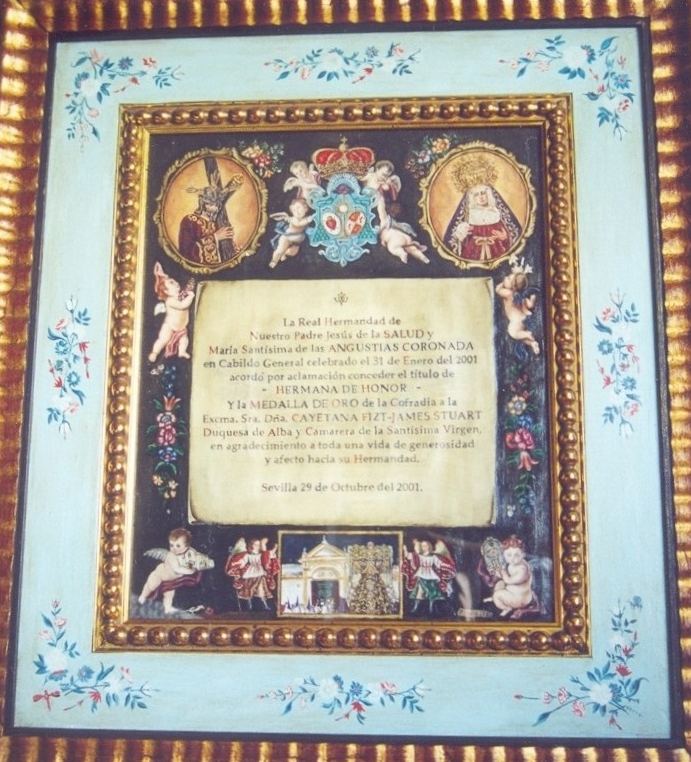 La Real Hermandad de
Nuestro Padre Jesús de la SALUD y
María Santísima de las ANGUSTIAS CORONADA
en Cabildo General celebrado el 31 de Enero del 2001
acordó por aclamación conceder el título de
- HERMANA DE HONOR -
Y la MEDALLA DE ORO de la Cofradía a la
Excma. Sra. Dña. CAYETANA FIZT-JAMES STUART
Duquesa de Alba y Camarera de la Santísima Virgen,
en agradecimiento a toda una vida de generosidad
y afecto hacia su Hermandad.
Sevilla 29 de Octubre del 2001.